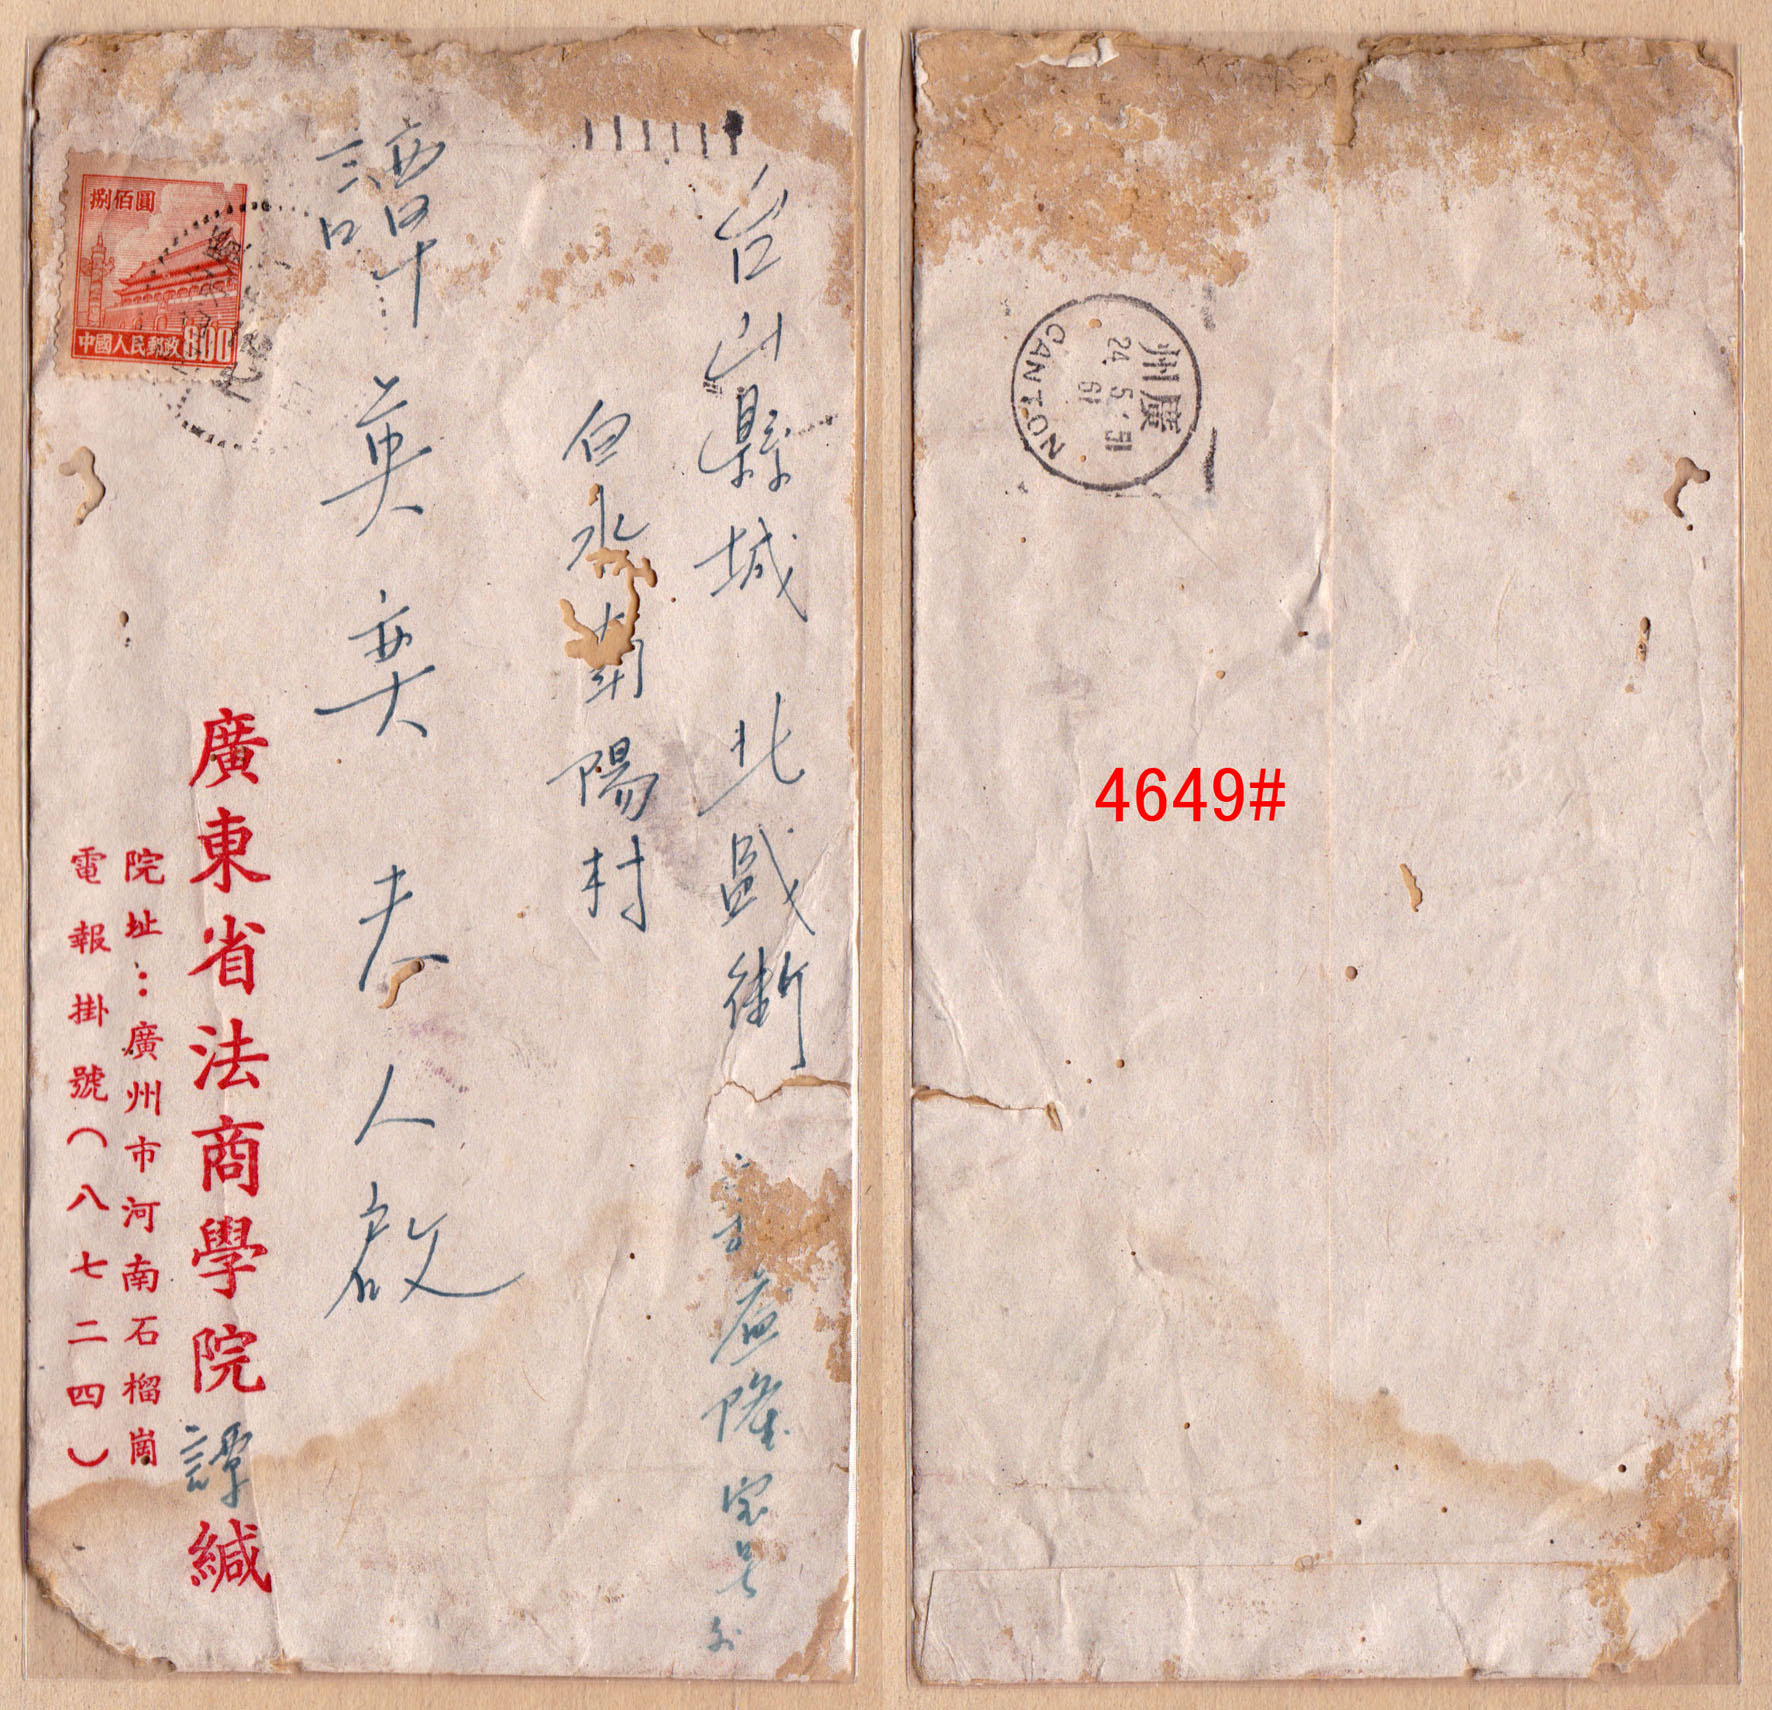 台山縣城北盛街
白水南陽村
譚英耍夫人啟
隆宝号
廣東省法商學院譚緘
院址：廣州市河南石榴崗
電報掛號（八七二四）
捌佰圓
中國人民郵政800
廣州
24. 5. 51
19
CANTON
4649#